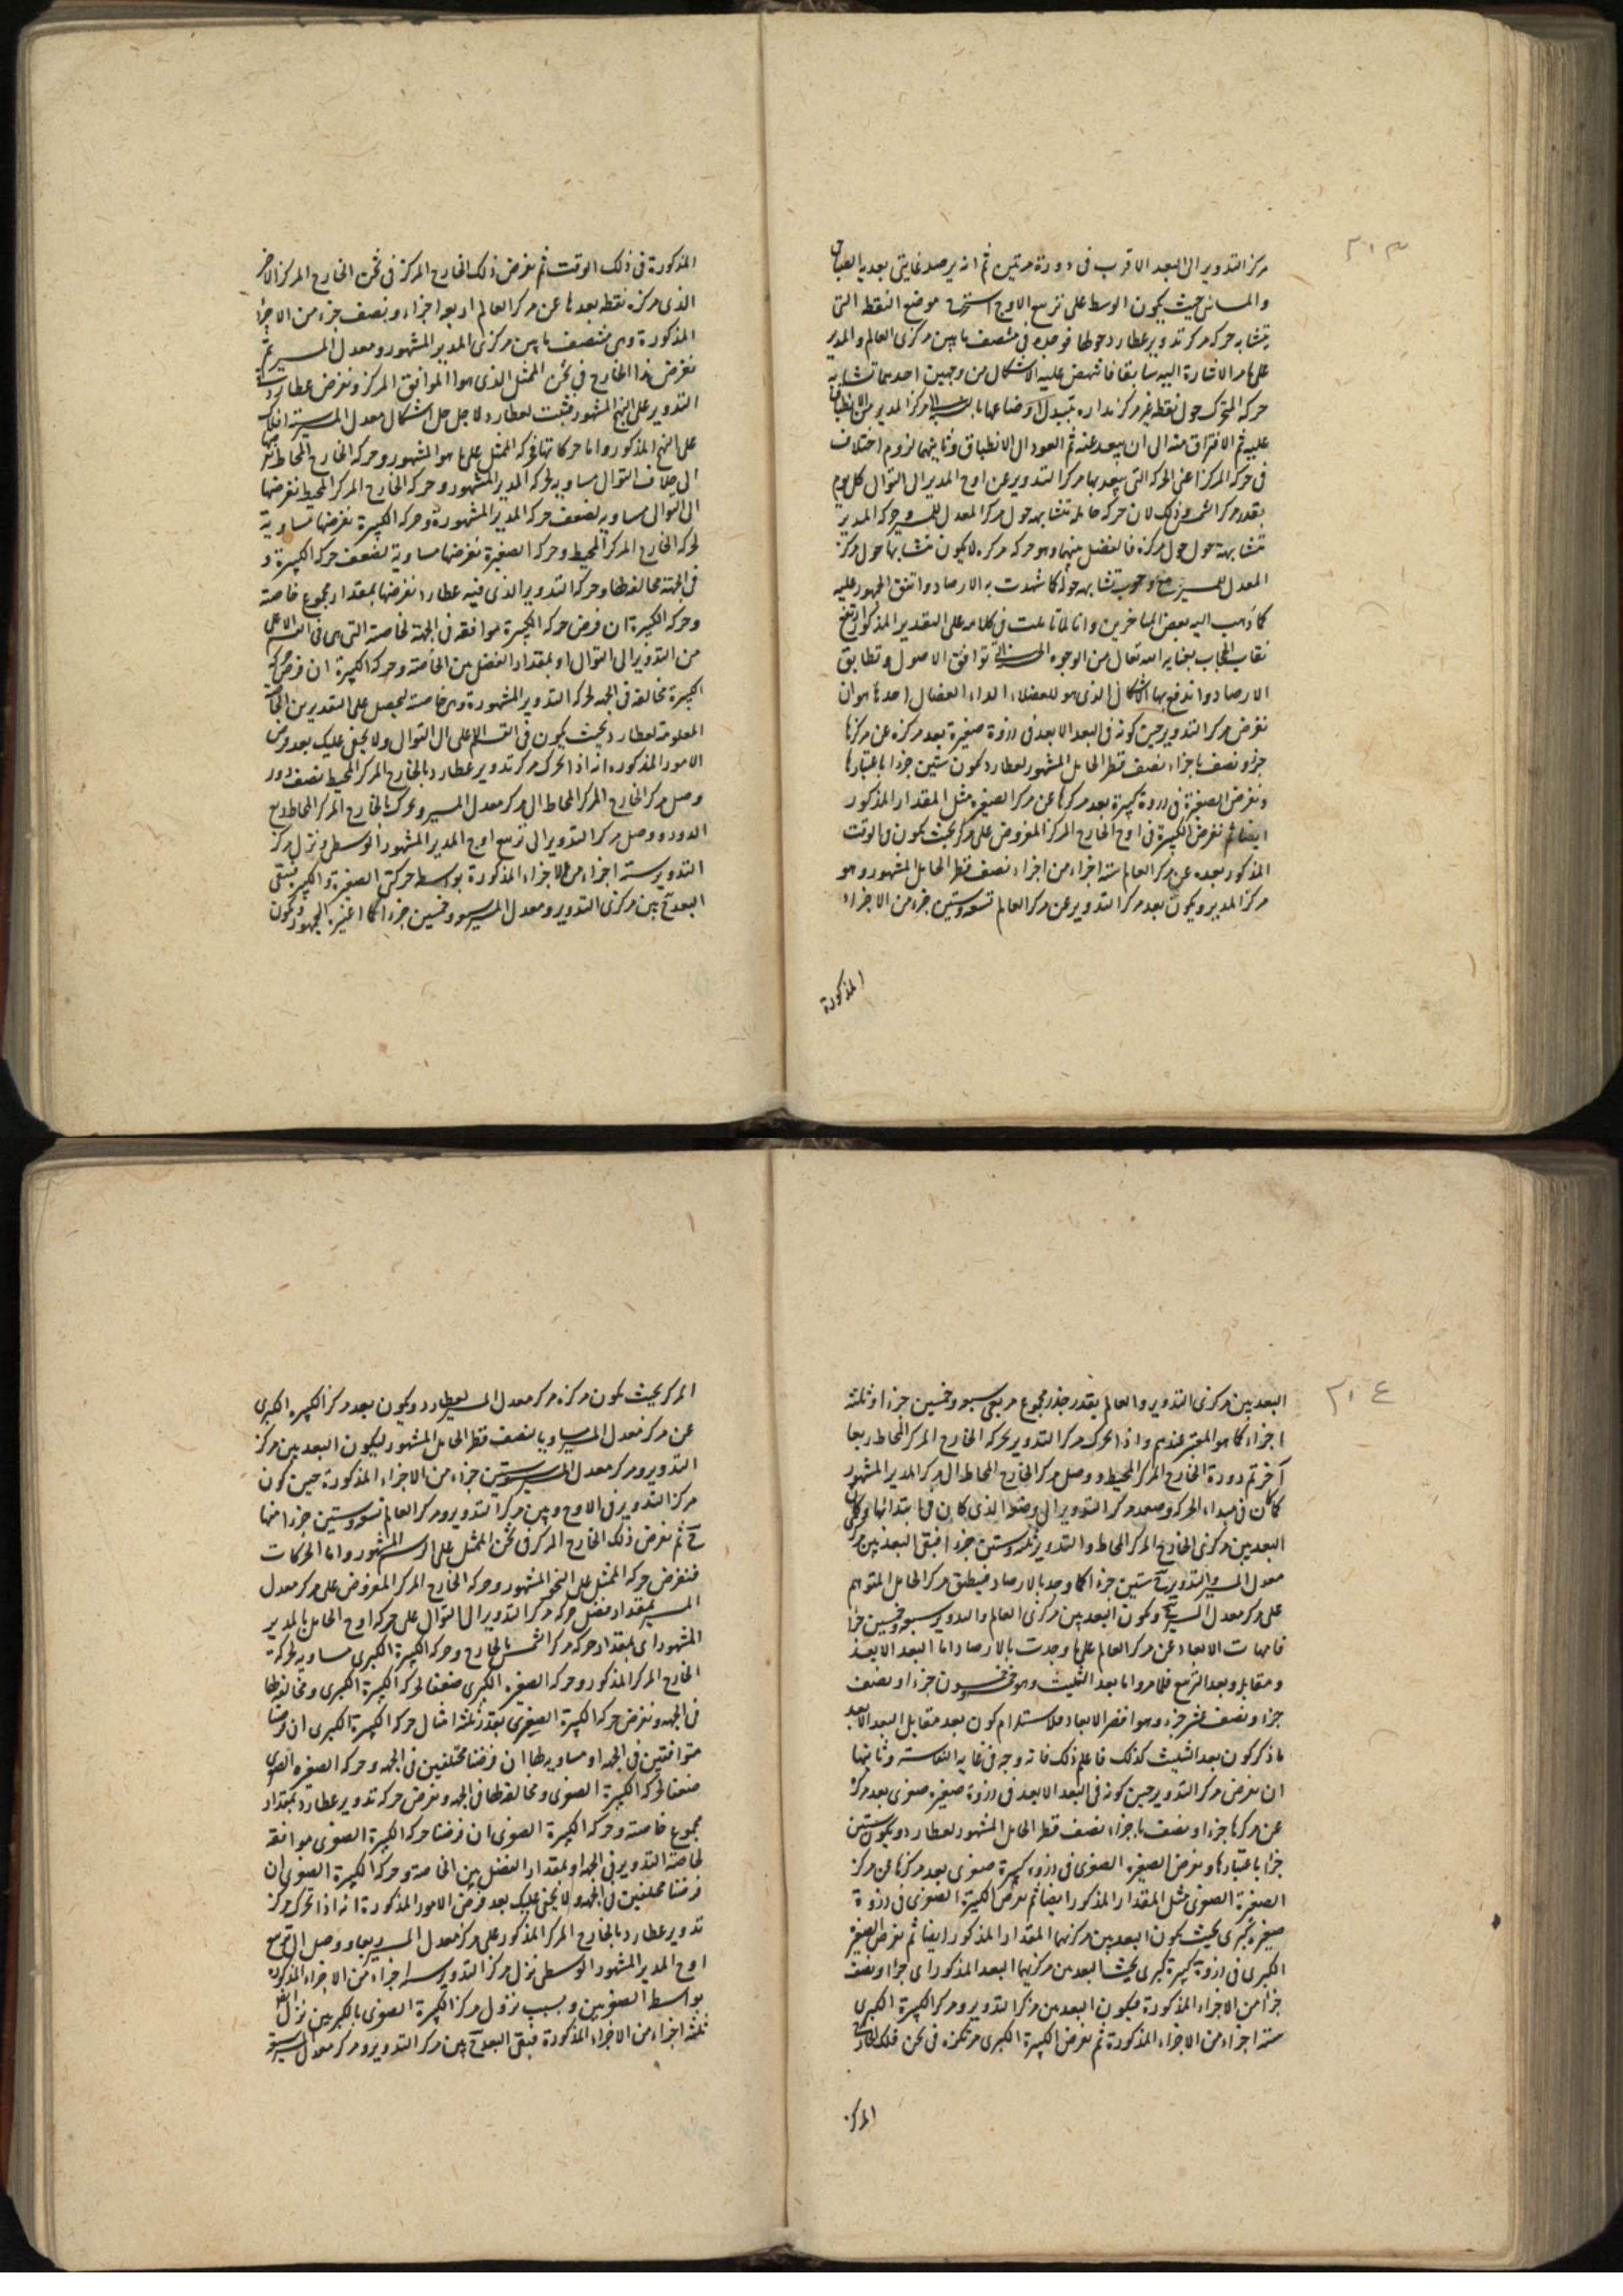 ٣١٣
مركز التدوير الى البعد الاقرب فى دورة مرتين ثم انه يرصد غايتى بعديه الصباحى
والمسائى حيث يكون الوسط على تربيع الاوج استخرج موضع النقط التى
تتشابه حركة مركز تدوير عطارد حولها فوجده فى منتصف ما بين مركزى العالم والمدير
على ما مر الاشارة اليه سابقا فانتهض عليه الاشكال من وجهين احدهما تشابه
حركة المتحرك حول نقطة غير مركز مداره بتبدل اوضاعها مركز المدير من الانطباق
عليه ثم الافتراق منه الى ان يبعد عنه ثم العود الى الانطباق وثانيهما لزوم اختلاف
فى حركة المركز اعنى الحركة التى يبعد بها مركز التدوير عن اوج المدير الى التوال كل يوم
بقدر مركز الشمس وذلك لان حركة حامله تتشابه حول مركز المعدل للمسير وحركة المدير
تتشابه حول مركزه فالفضل بينهما وهو حركة مركزه لا يكون متشابها حول مركز
المعدل للمسير مع وجوب تشابهه حوله كما شهدت به الارصاد واتفق الجمهور عليه
كما ذهب اليه بعض المتاخرين وانا لما تاملت فى كلامه على التقدير المذكور ارتفع
نقاب الحجاب بعناية الله تعالى من الوجوه توافق الاصول وتطابق
الارصاد واندفع بها الاشكال الذى هو للفضلاء الداء العضال احدها هو ان
نفرض مركز التدوير حين كونه فى البعد الابعد فى ذروة صغيرة بعد مركزه عن مركزها
جزؤ ونصف باجزاء نصف قطر الحامل المشهور لعطارد كون ستين جزءا باعتبارها
ونفرض الصغيرة فى ذروة كبيرة بعد مركزها عن مركز الصغيرة مثل المقدار المذكور
ايضا ثم نفرض الكبيرة فى اوج الخارج المركز المفروض على مركز بحيث يكون فى الوقت
المذكور بعده عن مركز العالم ستة اجزاء من اجزاء نصف قطر الحامل المشهور وهو
مركز المدير ويكون بعد مركز التدوير عن مركز العالم تسعة وستين جزء من الاجزاء
المذكورة
المذكورة فى ذلك الوقت ثم نفرض ذلك الخارج المركز فى ثخن الخارج المركز الاخر
الذى مركزه نقطة بعدها عن مركز العالم اربعة اجزاء ونصف جزء من الاجزاء
المذكورة وهى منتصف ما بين مركزى المدير المشهور ومعدل المسير ثم
نفرض هذا الخارج فى ثخن الممثل الذى هو الموافق المركز ونفرض عطارد
التدوير على النهج المشهور فثبت لعطارد لاجل حل اشكال معدل المسير ستة افلاك
على النهج المذكور واما حركاتها فحركة الممثل على ما هو المشهور وحركة الخارج المحاط نفرضها
الى خلاف التوال مساوية لحركة المدير المشهور وحركة الخارج المركز المحيط نفرضها
الى التوال مساوية لضعف حركة المدير المشهورة وحركة الكبيرة نفرضها مساوية
لحركة الخارج المركز المحيط وحركة الصغيرة نفرضها مساوية لضعف حركة الكبيرة و
فى الجهة مخالفة لها وحركة التدوير الذى فيه عطارد نفرضها بمقدار مجموع خاصته
وحركة الكبيرة ان فرض حركة الكبيرة موافقة فى الجهة لخاصته التى هى فى القسم الاعلى
من التدوير الى التوال او بمقدار الفضل بين الخاصة وحركة الكبيرة ان فرض حركة
الكبيرة مخالفة فى الجهة لحركة التدوير المشهورة وهى خاصته ليحصل على التقديرين الخاصة
المعلومة لعطارد بحيث يكون فى القسم الاعلى الى التوال ولا يخفى عليك بعد فرض
الامور المذكورة انه اذا تحرك مركز تدوير عطارد بالخارج المركز المحيط نصف دور
وصل مركز الخارج المركز المحاط الى مركز معدل المسير وتحرك بالخارج المركز المحاط ربع
الدورة ووصل مركز التدوير الى تربيع اوج المدير المشهور الوسطى ونزل مركز
التدوير ستة اجزاء من الاجزاء المذكورة بواسطة حركتى الصغيرة والكبيرة فبقى
البعد بين مركزى التدوير ومعدل المسير سبعة وخمسين جزءا كما اعتبره الجمهور ويكون
٣١٤
البعد بين مركزى التدوير والعالم بقدر جذر مجموع مربعى سبعة وخمسين جزءا وثلثة
اجزاء كما هو المعتبر عندهم واذا تحرك مركز التدوير بحركة الخارج المركز المحاط ربعا
آخر تم دورة الخارج المركز المحيط ووصل مركز الخارج المحاط الى مركز المدير المشهور
كما كان فى مبداء الحركة وصعد مركز التدوير الى موضعه الذى كان فى ابتدائها وكان
البعد بين مركزى الخارج المركز المحاط والتدوير ثلثة وستين جزءا فبقى البعد بين مركزى
معدل المسير والتدوير ستين جزءا كما وجد بالارصاد فينطبق مركز الحامل المتوهم
على مركز معدل المسير ويكون البعد بين مركزى العالم والتدوير سبعة وخمسين جزءا
فامهات الابعاد عن مركز العالم على ما وجدت بالارصاد اما البعد الابعد
ومقابله وبعد التربيع فلما مر واما بعد التثليث وهو خمسون جزءا ونصف
جزء ونصف عشر جزء وهو اقصر الابعاد فلاستلزام كون بعد مقابل البعد الابعد
ما ذكر كون بعد التثليث كذلك فاعلم ذلك فانه وجه فى غاية النفاسة وثانيها
ان نفرض مركز التدوير حين كونه فى البعد الابعد فى ذروة صغيرة صغرى بعد مركزه
عن مركزها جزءا ونصف باجزاء نصف قطر الحامل المشهور لعطارد ويكون ستين
جزءا باعتبارها ونفرض الصغيرة الصغرى فى ذروة كبيرة صغرى بعد مركزها عن مركز
الصغيرة الصغرى مثل المقدار المذكور ايضا ثم نفرض الكبيرة الصغرى فى ذروة
صغيرة كبرى بحيث يكون البعد بين مركزيهما المقدار المذكور ايضا ثم نفرض الصغيرة
الكبرى فى ذروة كبيرة كبرى بحيث البعد بين مركزيهما البعد المذكور اى جزءا ونصف
جزء من الاجزاء المذكورة فيكون البعد بين مركز التدوير ومركز الكبيرة الكبرى
ستة اجزاء من الاجزاء المذكورة ثم نفرض الكبيرة الكبرى مرتكزة فى ثخن فلك الخارج
المركز
المركز بحيث يكون مركزه مركز معدل المسير لعطارد ويكون بعد مركز الكبيرة الكبرى
عن مركز معدل المسير مساويا لنصف قطر الحامل المشهور ليكون البعد بين مركز
التدوير ومركز معدل المسير ستة وستين جزءا من الاجزاء المذكورة حين كون
مركز التدوير فى الاوج وبين مركز التدوير ومركز العالم تسعة وستين جزءا منها
ح ثم نفرض ذلك الخارج المركز فى ثخن الممثل على الرسم المشهور واما الحركات
فنفرض حركة الممثل على النحو المشهور وحركة الخارج المركز المفروض على مركز معدل
المسير بمقدار فضل حركة مركز التدوير الى التوال على حركة اوج الحامل بالمدير
المشهور اى بمقدار حركة مركز الشمس بالخارج وحركة الكبيرة الكبرى مساوية لحركة
الخارج المركز المذكور وحركة الصغيرة الكبرى ضعف حركة الكبيرة الكبرى ومخالفة لها
فى الجهة ونفرض حركة الكبيرة الصغرى بقدر ثلثة امثال حركة الكبيرة الكبرى ان فرضنا
متوافقتين فى الجهة او مساوية لها ان فرضنا مختلفين فى الجهة وحركة الصغيرة الصغرى
ضعف حركة الكبيرة الصغرى ومخالفة لها فى الجهة ونفرض حركة تدوير عطارد بمقدار
مجموع خاصته وحركة الكبيرة الصغرى ان فرضنا حركة الكبيرة الصغرى موافقة
لخاصة التدوير فى الجهة او بمقدار الفضل بين الخاصة وحركة الكبيرة الصغرى ان
فرضنا مختلفين فى الجهة ولا يخفى عليك بعد فرض الامور المذكورة انه اذا تحرك مركز
تدوير عطارد بالخارج المركز المذكور على مركز معدل المسير ربعا ووصل الى تربيع
اوج المدير المشهور الوسطى نزل مركز التدوير ستة اجزاء من الاجزاء المذكورة
بواسطة الصغريين وبسبب نزول مركز الكبيرة الصغرى بالكبريين نزل ايضا
ثلثة اجزاء من الاجزاء المذكورة فبقى البعد ح بين مركز التدوير ومركز معدل المسير سبعة